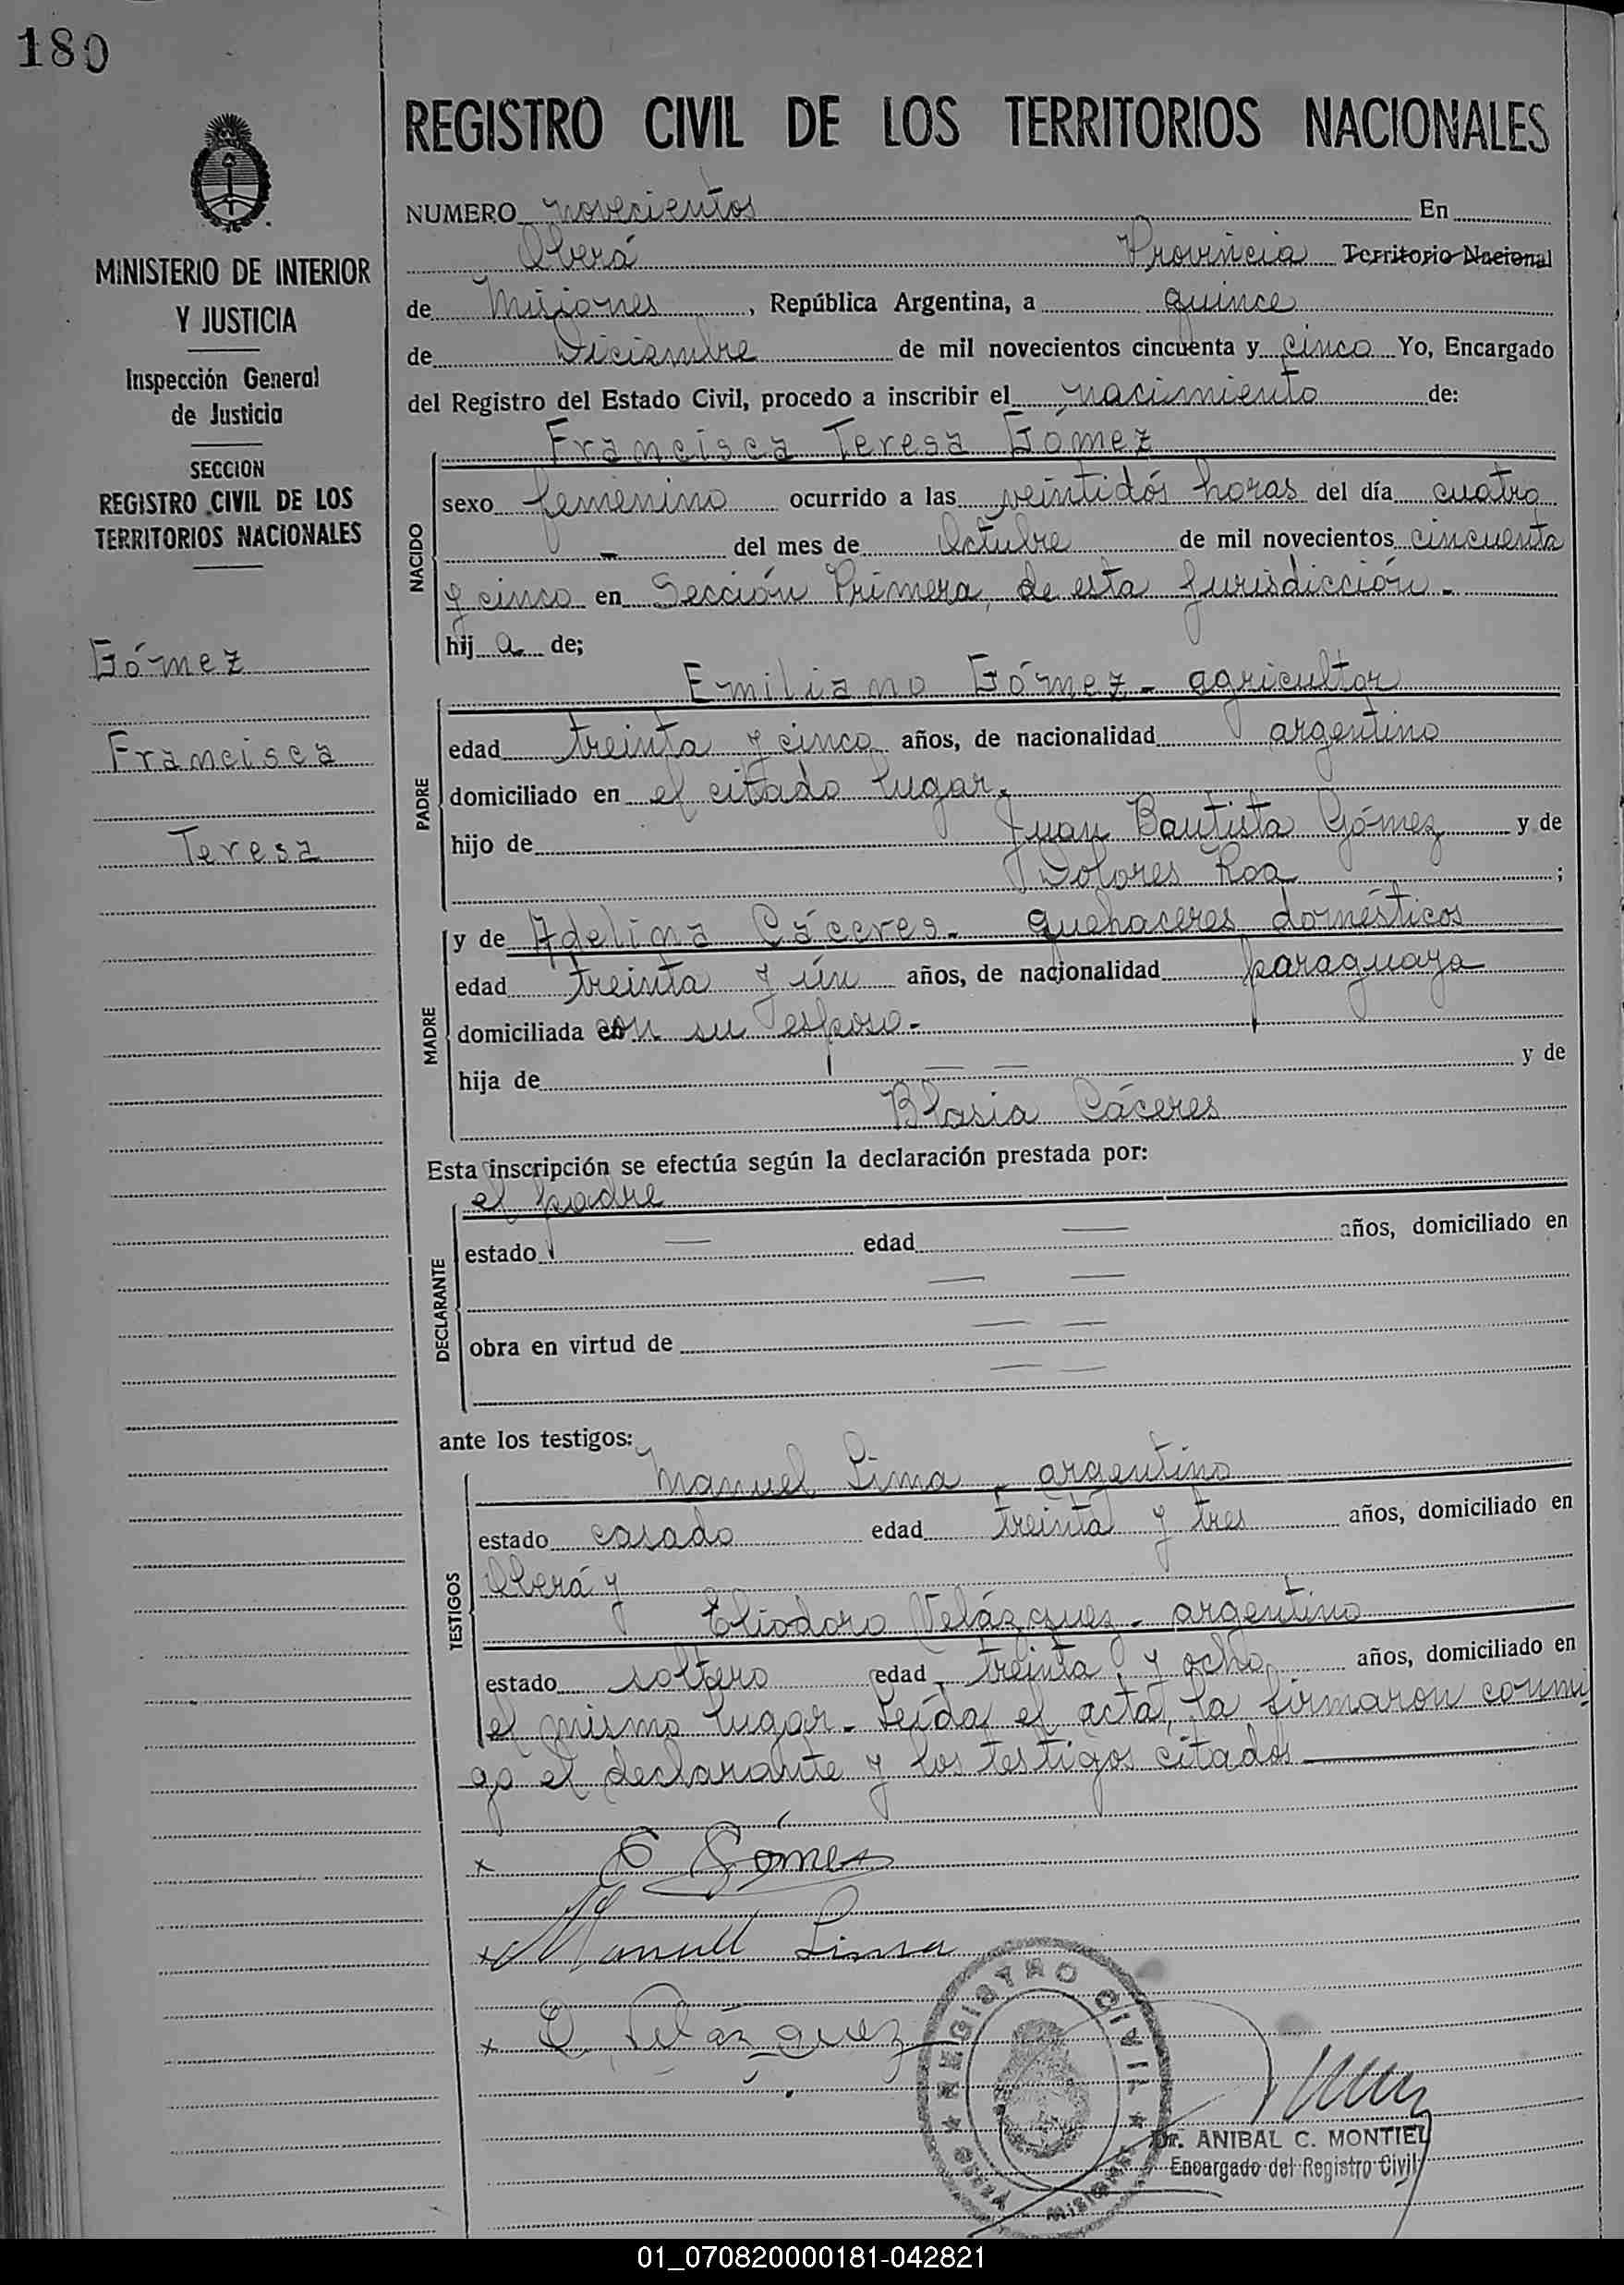 180
MINISTERIO DE INTERIOR
Y JUSTICIA
Inspección General
de Justicia
SECCION
REGISTRO CIVIL DE LOS
TERRITORIOS NACIONALES
Gómez
Francisca
Teresa
REGISTRO CIVIL DE LOS TERRITORIOS NACIONALES
NUMERO novecientos En
Oberá Provincia Territorio Nacional
de Misiones, República Argentina, a quince
de Diciembre de mil novecientos cincuenta y cinco Yo, Encargado
del Registro del Estado Civil, procedo a inscribir el nacimiento de:
Francisca Teresa Gómez
NACIDO
sexo femenino ocurrido a las veintidós horas del día cuatro
- del mes de Octubre de mil novecientos cincuenta
y cinco en Sección Primera, de esta jurisdicción.-
hij a de;
Emiliano Gómez - agricultor
PADRE
edad treinta y cinco años, de nacionalidad argentino
domiciliado en el citado lugar.
hijo de Juan Bautista Gómez y de
Dolores Roa ;
MADRE
y de Adelina Cáceres - quehaceres domésticos
edad treinta y un años, de nacionalidad paraguaya
domiciliada con su esposo -
hija de — — y de
Blasia Cáceres
Esta inscripción se efectúa según la declaración prestada por:
el padre
DECLARANTE
estado — edad — años, domiciliado en
— —
obra en virtud de — —
— —
ante los testigos:
Manuel Lima - argentino
TESTIGOS
estado casado edad treinta y tres años, domiciliado en
Oberá y
Eliodoro Velázquez - argentino
estado soltero edad treinta y ocho años, domiciliado en
el mismo lugar - Leída el acta, la firmaron conmi
go el declarante y los testigos citados —
x E Gómes
x Manuel Lima
x E. Velázquez
REGISTRO CIVIL
OBERA MISIONES
Dr. ANIBAL C. MONTIEL
Encargado del Registro Civil
01_070820000181-042821